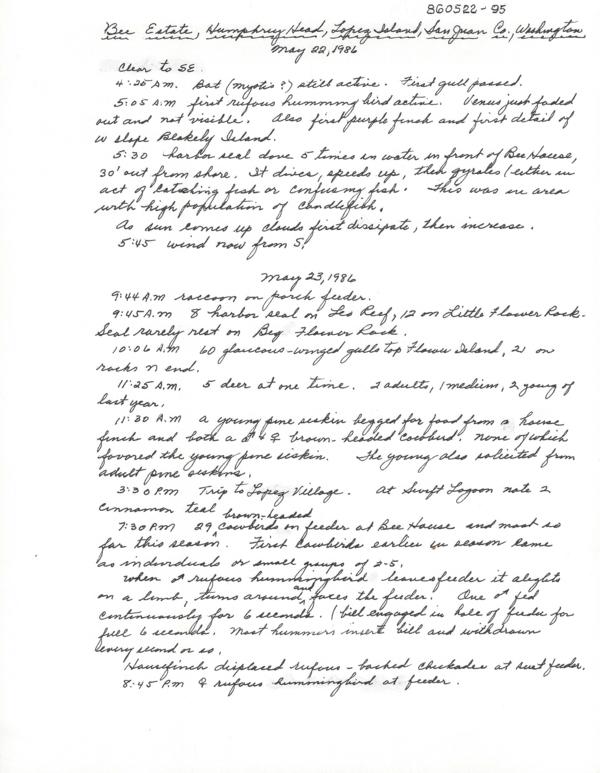 860522-95
Bee Estate, Humphrey Head, Lopez Island, San Juan Co., Washington
May 22, 1986
Clear to SE.
4:25 A.M. Bat (myotis?) still active. First gull passed.
5:05 A.M first rufous hummingbird active. Venus just faded
out and not visible. Also first purple finch and first detail of
W slope Blakely Island.
5:30 harbor seal dove 5 times in water in front of Bee House,
30' out from shore. It dives, speeds up, then gyrates (either in
act of catching fish or confusing fish. This was in area
with high population of candlefish.
As sun comes up clouds first dissipate, then increase.
5:45 wind now from S.
May 23, 1986
9:44 A.M raccoon on porch feeder.
9:45 A.M. 8 harbor seal on Leo Reef, 12 on Little Flower Rock.
Seal rarely rest on Big Flower Rock.
10:06 A.M 60 glaucous-winged gulls top Flower Island, 21 on
rocks N end.
11:25 A.M. 5 deer at one time. 2 adults, 1 medium, 2 young of
last year.
11:30 A.M a young pine siskin begged for food from a house
finch and both a ♂ & ♀ brown-headed cowbird. none of which
favored the young pine siskin. The young also solicited from
adult pine siskins.
3:30 P.M Trip to Lopez Village. At Swift Lagoon note 2
cinnamon teal
brown-headed
7:30 P.M 29 ^ cowbirds on feeder at Bee House and most so
far this season. First cowbirds earlier in season came
as individuals or small groups of 2-5.
When ♂ rufous hummingbird leaves feeder it alights
on a limb, turns around and faces the feeder. One ♂ fed
continuously for 6 seconds. (bill engaged in hole of feeder for
full 6 seconds. Most hummers insert bill and withdrawn
every second or so.
Housefinch displaced rufous-backed chickadee at suet feeder.
8:45 P.M ♀ rufous hummingbird at feeder.